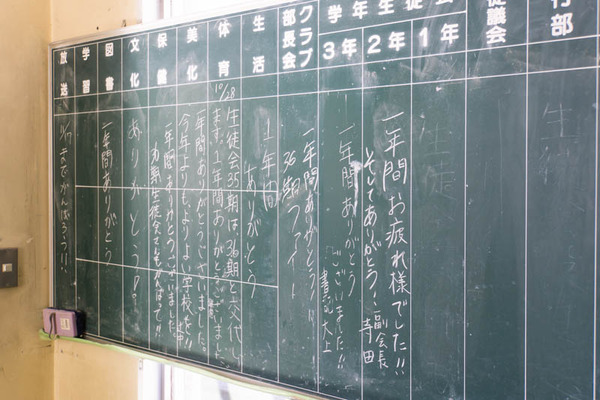 行部
生徒議会
学年生徒会
1年
2年
3年
クラブ部長会
生活
体育
美化
保健
文化
図書
学習
放送
一年間お疲れ様でした!!
そしてありがとう!
副会長
寺田
一年間ありがとう
ございました!!
書記 大上
一年間ありがとう!!
36期ファイト
1年間
ありがとう
10/28
生徒会35期は36期と交代し
ます。1年間ありがとうございました。
1年間ありがとうございました。
今年よりもよりよい学校を!!
一年間ありがとうございました。
ありがとう
一年間ありがとう
までがんばろう!!